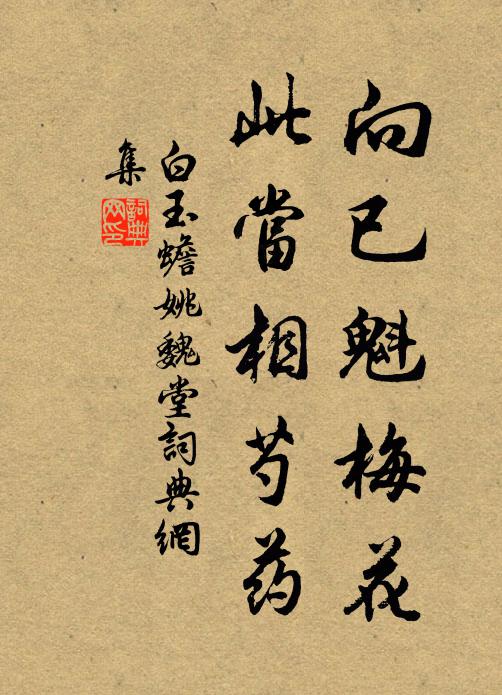 向已魁梅花
此當相芍药
白玉蟾姚魏堂詞典網
集
詞典網印